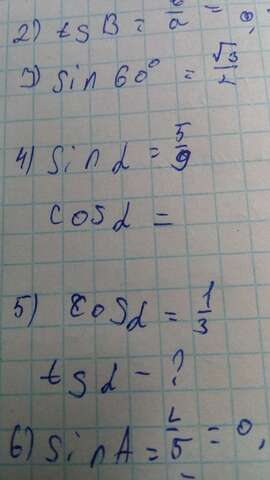 2) tg B = 6/a = 0,
3) sin 60° = √3/2
4) sin α = 5/9
cos α =
5) cos α = 1/3
tg α - ?
6) sin A = 2/5 = 0,